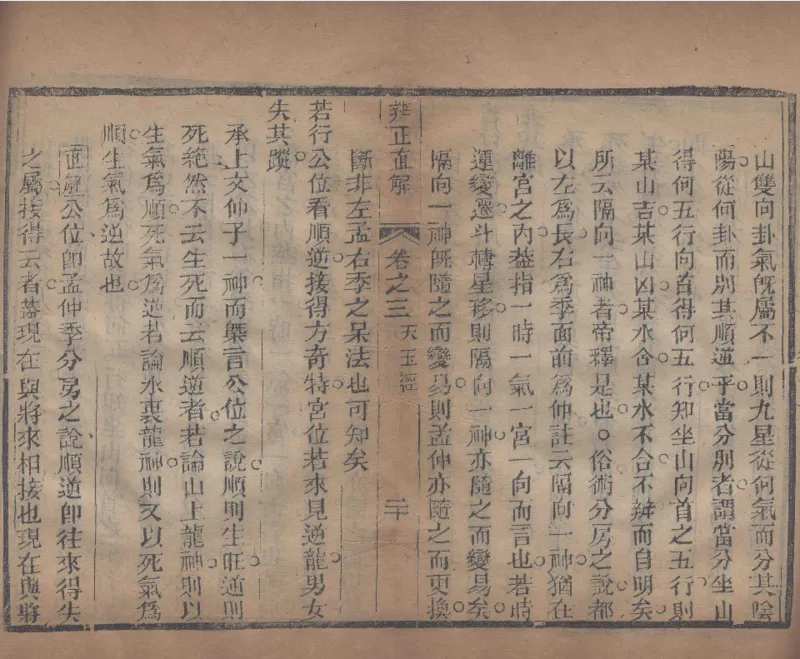 山雙向卦氣旣屬不一則九星從何氣而分其陰
陽從何卦而別其順逆乎當分別者謂當分坐山
得何五行向首得何五行知坐山向首之五行則
某山吉某山凶某水合某水不合不辨而自明矣
所云隔向一神者帝釋是也。俗術分房之說都
以左爲長右爲季面前爲仲註云隔向一神猶在
離宮之內葢指一時一氣一宮一向而言也若時
運變遷斗轉星移則隔向一神亦隨之而變易矣
隔向一神旣隨之而變易則孟仲亦隨之而更換
辨正直解
卷之三 天玉經
二十
斷非左孟右季之呆法也可知矣
若行公位看順逆接得方奇特宮位若來見逆龍男女
失其蹤
承上文仲子一神而槩言公位之說順則生旺逆則
死絕然不云生死而云順逆者若論山上龍神則以
生氣爲順死氣爲逆若論水裏龍神則又以死氣爲
順生氣爲逆故也
直解公位卽孟仲季分房之說順逆卽往來得失
之屬接得云者葢現在與將來相接也現在與將